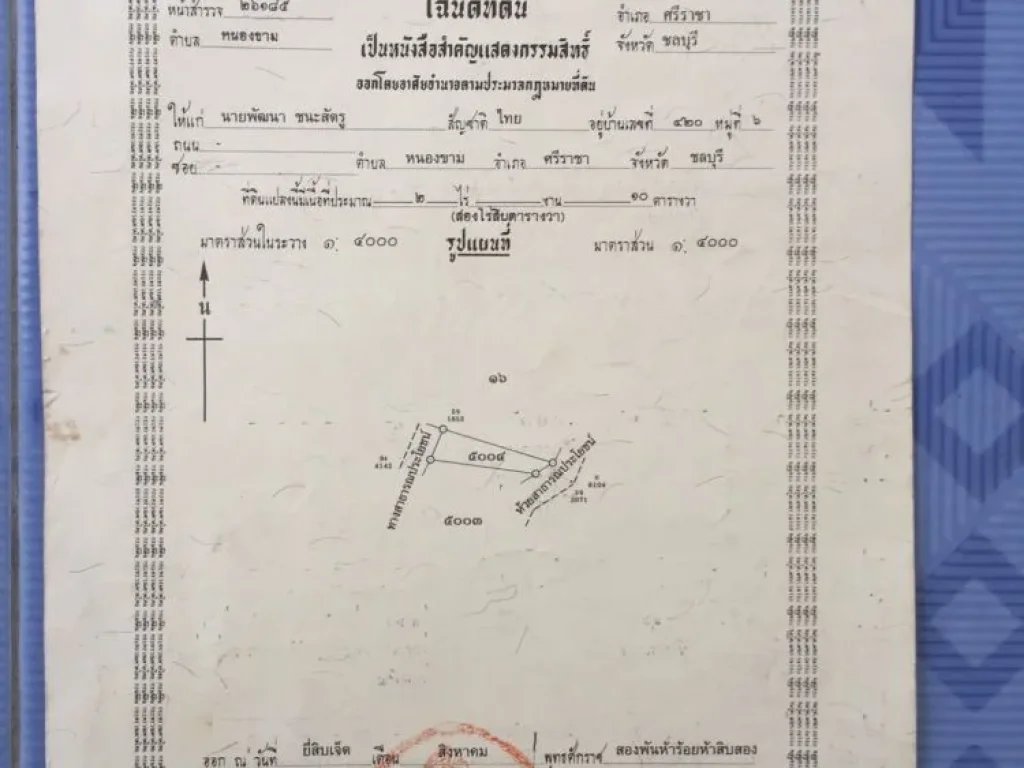 หน้าสำรวจ ๒๖๑๘๕
โฉนดที่ดิน
อำเภอ ศรีราชา
ตำบล หนองขาม
เป็นหนังสือสำคัญแสดงกรรมสิทธิ์
จังหวัด ชลบุรี
ออกโดยอาศัยอำนาจตามประมวลกฎหมายที่ดิน
ให้แก่ นายพัฒนา ชนะสัตรู สัญชาติ ไทย อยู่บ้านเลขที่ ๔๒๐ หมู่ที่ ๖
ถนน -
ซอย - ตำบล หนองขาม อำเภอ ศรีราชา จังหวัด ชลบุรี
ที่ดินแปลงนี้มีเนื้อที่ประมาณ ๒ ไร่ งาน ๑๐ ตารางวา
(สองไร่สิบตารางวา)
มาตราส่วนในระวาง ๑: ๔๐๐๐ รูปแผนที่ มาตราส่วน ๑: ๔๐๐๐
น
๑๖
๕๐๐๔
ทางสาธารณประโยชน์
ห้วยสาธารณประโยชน์
๕๐๐๓
ออก ณ วันที่ ยี่สิบเจ็ด เดือน สิงหาคม พุทธศักราช สองพันห้าร้อยห้าสิบสอง